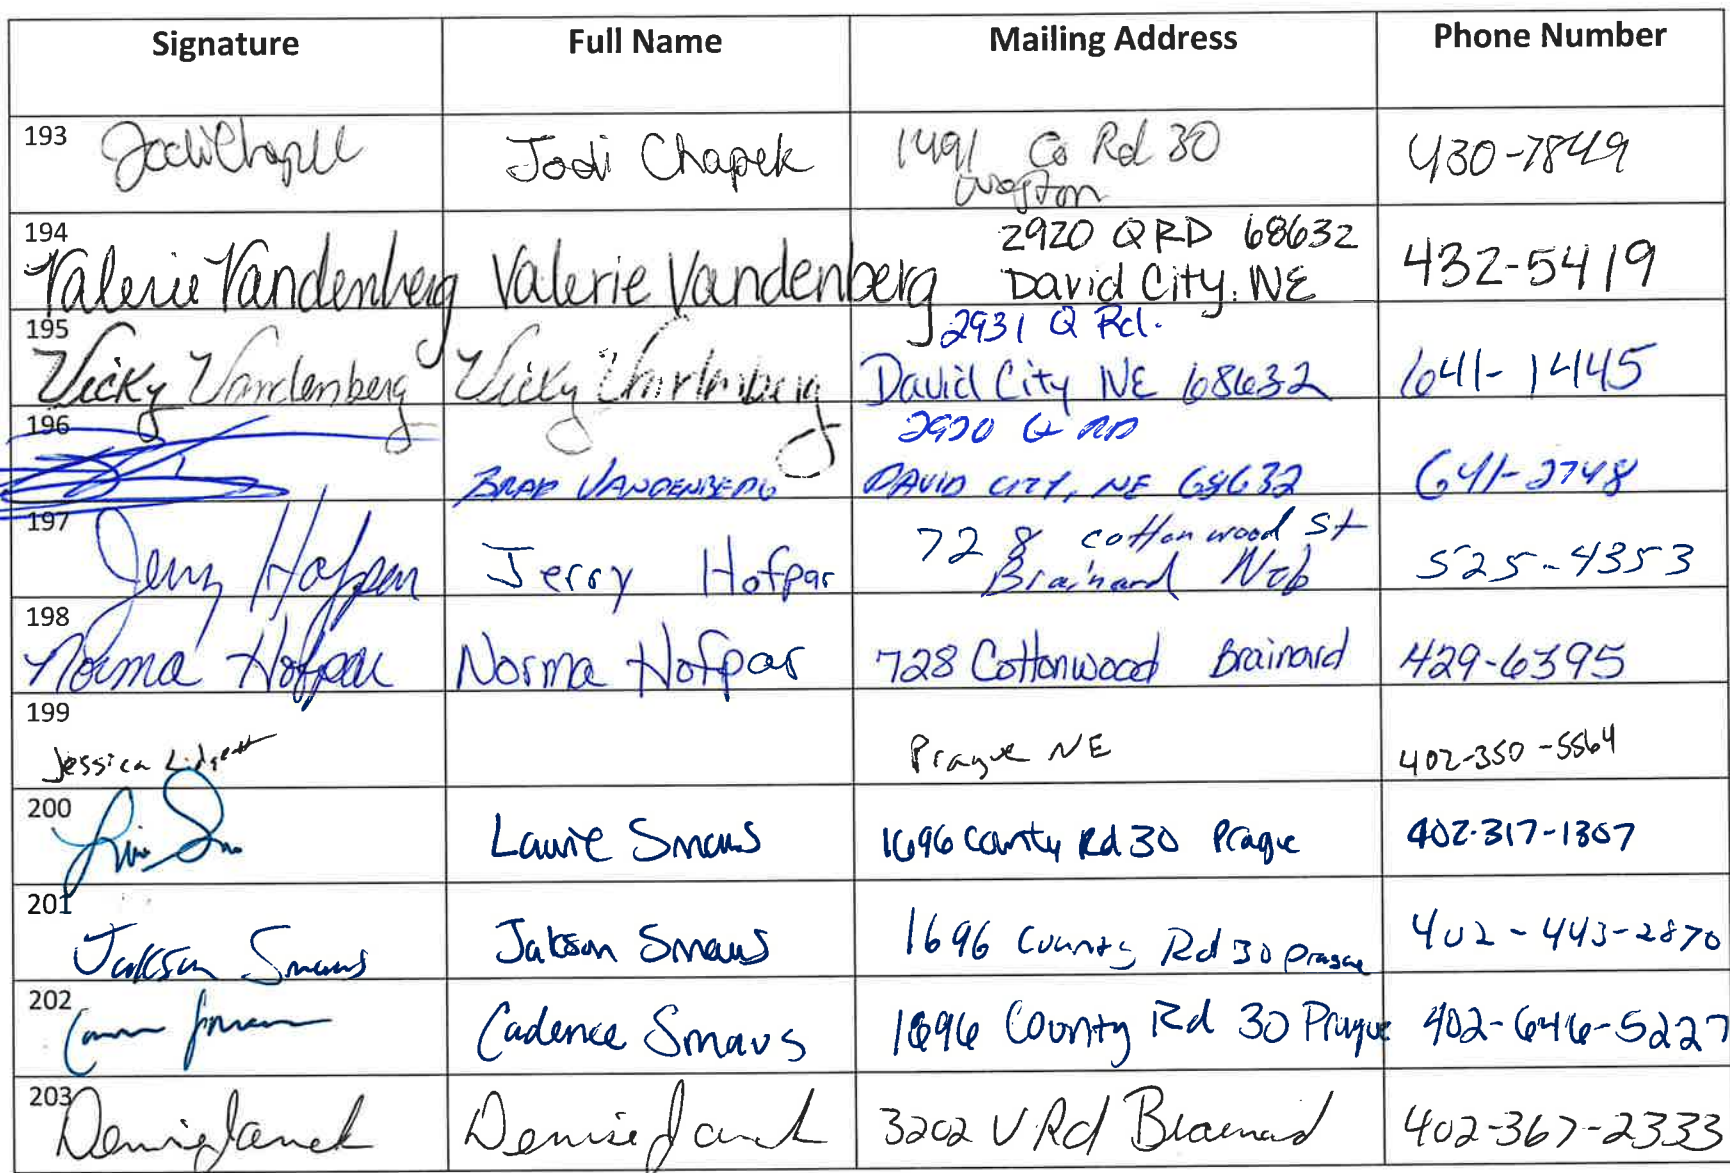 Signature Full Name Mailing Address Phone Number
193 Jodi Chapek Jodi Chapek 1491 Co Rd 30 430-7849
Weston
194 2920 Q RD 68632
Valerie Vandenberg Valerie Vandenberg David City, NE 432-5419
195 2931 Q Rd.
Vicky Vandenberg Vicky Vandenberg David City NE 68632 641-1445
196 2920 Q RD
BRAD VANDENBERG DAVID CITY, NE 68632 641-2748
197 728 cottonwood St
Jerry Hofpar Jerry Hofpar Brainard Neb 525-4353
198 Norma Hofpar Norma Hofpar 728 Cottonwood Brainard 429-6395
199 Jessica Lidgett Prague NE 402-350-5564
200 Laurie Smaus 1696 County Rd 30 Prague 402-317-1307
201 Jakson Smaus Jakson Smaus 1696 County Rd 30 Prague 402-443-2870
202 Cadence Smaus 1696 County Rd 30 Prague 402-646-5227
203 Denise Janek Denise Janek 3202 V Rd Brainard 402-367-2333